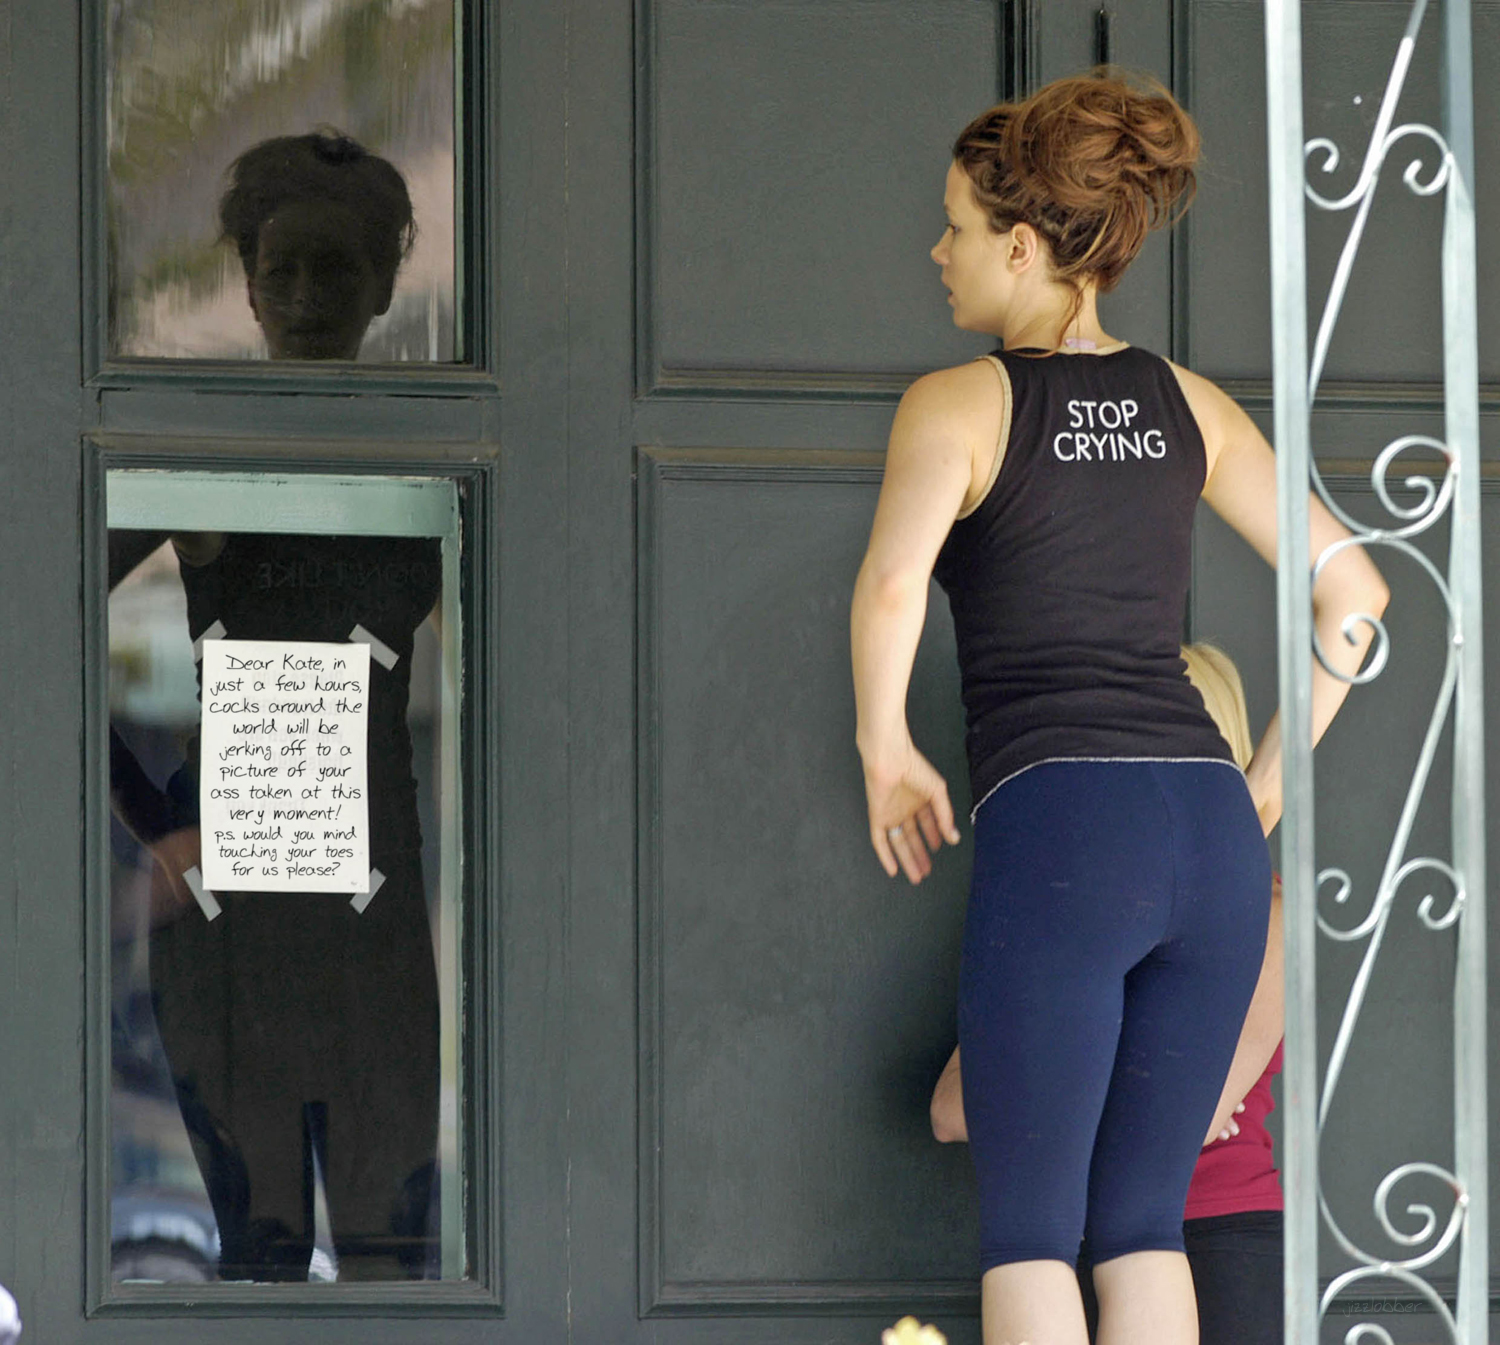 Dear Kate, in
just a few hours,
cocks around the
world will be
jerking off to a
picture of your
ass taken at this
very moment!
p.s. would you mind
touching your toes
for us please?
STOP
CRYING
DON'T LIKE
jizzlobber